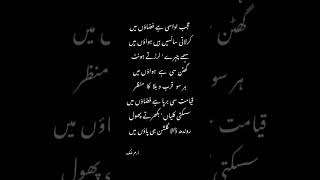 عجب اداسی ہے فضاؤں میں
کرلاتی سانسیں ہیں ہواؤں میں
سہمے چہرے ، لرزتے ہونٹ
گھٹن سی ہے ہواؤں میں
ہر سو قرب و بلا کا منظر
قیامت سی برپا ہے فضاؤں میں
سسکتی کلیاں ، بکھرتے پھول
روندھ ڈالا گلشن ہی پاؤں میں
ارم ملک